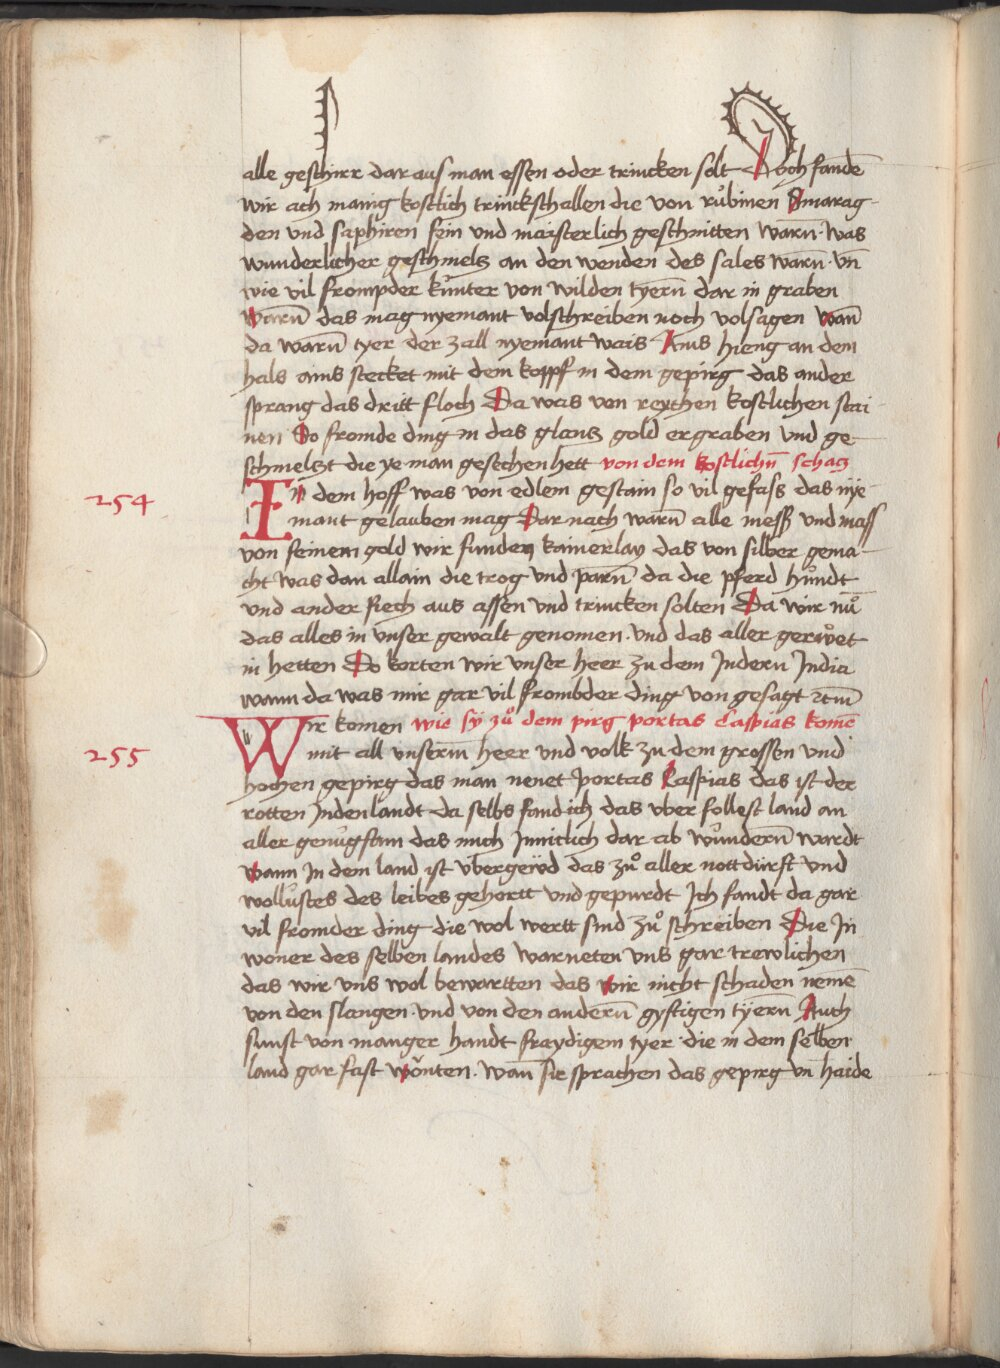 alle geschirr dar aus man essen oder trincken solt Doch fandē
wir ach manig kostlich trinckschallen die von růbinen Smarag-
den vnd saphiren fein vnd maisterlich geschnitten warn̄· was
wunderlicher geschmelz an den wenden des sales warn̄· vn̄
wie vil frompder kunter von wilden tyern̄ dar in graben
warn̄ das mag nyemant volschreiben noch volsagen wan̄
da warn̄ tyer der zall nyemant wais Ains hieng an dem
hals ains stecket mit dem kopff in dem gepirg das ander
sprang das dritt floch Da was von reychen kostlichen stai
nen So fromde ding in das glantz gold ergraben vnd ge-
schmeltzt die ye man gesechen hett von dem kostlichn̄ schatz
254 In dem hoff was von edlem gestain so vil gefass das nye-
mant gelauben mag Dar nach warn̄ alle mess vnd mass
von feinem gold wir funden kainerlay das von silber gema-
cht was dan allain die trog vnd parn̄ da die pferd hůndt
vnd ander fiech aus assen vnd trincken solten Da wir nů
das alles in vnser gewalt genomen· vnd das aller gerwet
in hetten Do korten wir vnser heer zu dem Indern India
wann da was mir gar vil frombder ding von gesagt
Wir komen wie sÿ zů dem pirg portas Caspias komē
255 mit all vnserm̄ heer vnd volk zu dem grossen vnd
hochen gepirg das man nenet portas Caspias das ist der
rotten Juden landt da selbs fand ich das vber follest land an
aller genugsam das mich Innitlich dar ab wundern̄ wardt
wann In dem land ist vbergeüd das zů aller nottdürft vnd
wollustes des leibes gehortt vnd gepurdt Ich fandt da gar
vil fromder ding die wol wertt sind zů schreiben Die In
woner des selben landes warneten vns gar trewlichen
das wir vns wol bewartten das wir nicht schaden nemē
von den slangen· vnd von den andern̄ gyftigen tÿern̄ Auch
sunst von manger handt fraydigem tyer· die in dem selben
land gar fast wonten· wan̄ sie sprachen das gepirg vn̄ haide